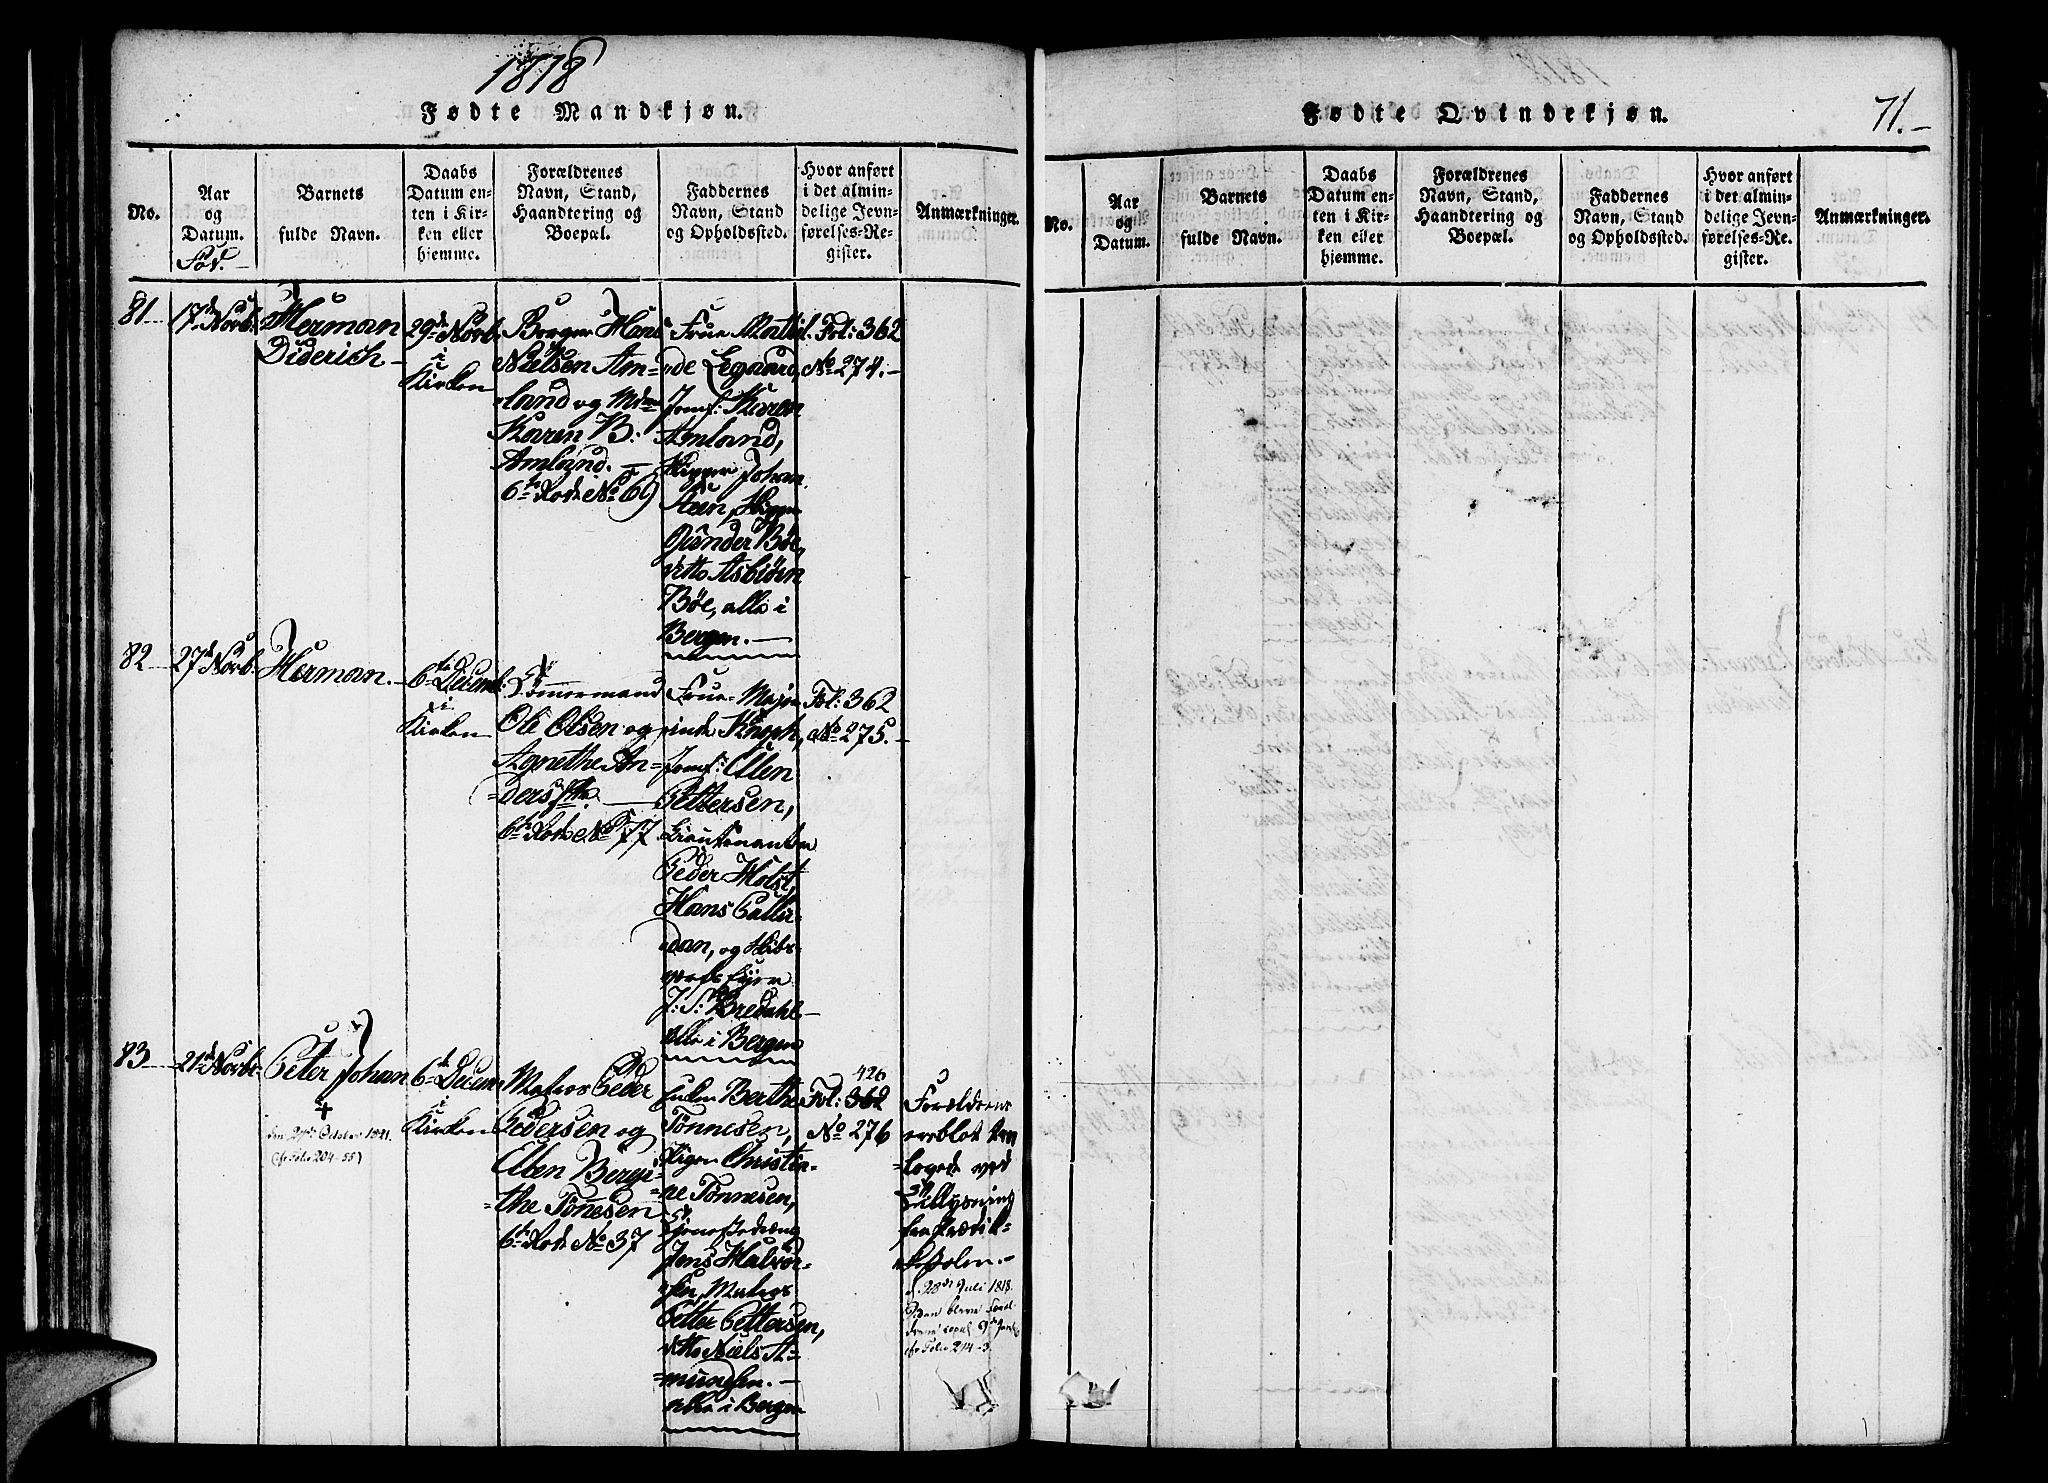 1818
Fødte Mandkjøn.
No.
Aar
og
Datum.
Fød.
Barnets
fulde Navn.
Daabs
Datum en-
ten i Kir-
ken eller
hjemme.
Forældrenes
Navn, Stand,
Haandtering og
Boepæl.
Faddernes
Navn, Stand
og Opholdssted.
Hvor anført
i det almin-
delige Jevn-
førelses-Re-
gister.
Anmærkninger.
81
17de Novb.
Herman
Diderich
29de Novb.
i
Kirken
Borger Hans
Nielsen Am-
land og Mdme
Karen B.
Amland.
6te Rode No 69
Frue Mathil-
de Legaard,
Jomf: Karen
Amland,
Skipper Johan
Steen, Skipper
Gunder Bøe,
ditto Asbiørn
Bøe, alle i
Bergen.
Fol: 362
No 274.
82
27de Novb.
Herman.
6te Decemb.
i
Kirken
Tømmermand
Ole Olsen og
Agnethe An-
ders
6te Rode No 77
Frue Major
Jomf: Ellen
Pettersen,
Lieutenanten
Peder Holst,
Hans
dan, og Skibs-
værfts Eyer
J: S: Bredahl
alle i Bergen
Fol: 362
No 275.
83
21de Novbr.
Peter Johan
+
den 29de October 1821.
(cfr Folio 204-55)
6te Decemb.
i
Kirken
Matros Peder
Pedersen og
Ellen Bergi-
the Tønesen
6te Rode No 37
Enken Berthe
Tønnesen,
Pigen Christia-
ne Tønnesen,
Jens Halvor-
sen, Matros
Petter Pettersen,
ditto Niels A-
mundsen.
alle i Bergen
426
Fol: 362
No 276
Forældrene
ereblot tro-
lovede ved
tillysning
fra Prædik-
stolen.
d. 28de Juli 1818.
cfr Folio 214-3.
Fødte Qvindekjøn.
71.
No.
Aar
og
Datum.
Barnets
fulde Navn.
Daabs
Datum en-
ten i Kir-
ken eller
hjemme.
Forældrenes
Navn, Stand,
Haandtering og
Boepæl.
Faddernes
Navn, Stand
og Opholdssted.
Hvor anført
i det almin-
delige Jevn-
førelses-Re-
gister.
Anmærkninger.